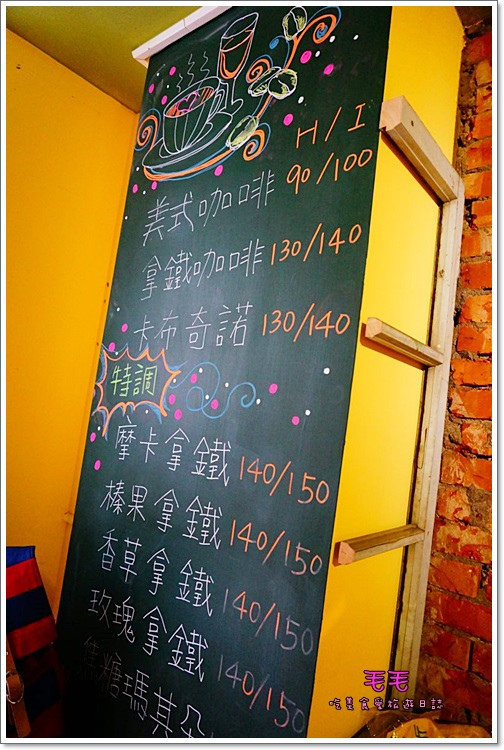 H/I
美式咖啡 90/100
拿鐵咖啡 130/140
卡布奇諾 130/140
特調
摩卡拿鐵 140/150
榛果拿鐵 140/150
香草拿鐵 140/150
玫瑰拿鐵 140/150
焦糖瑪其朵
毛毛
吃美食愛旅遊日誌